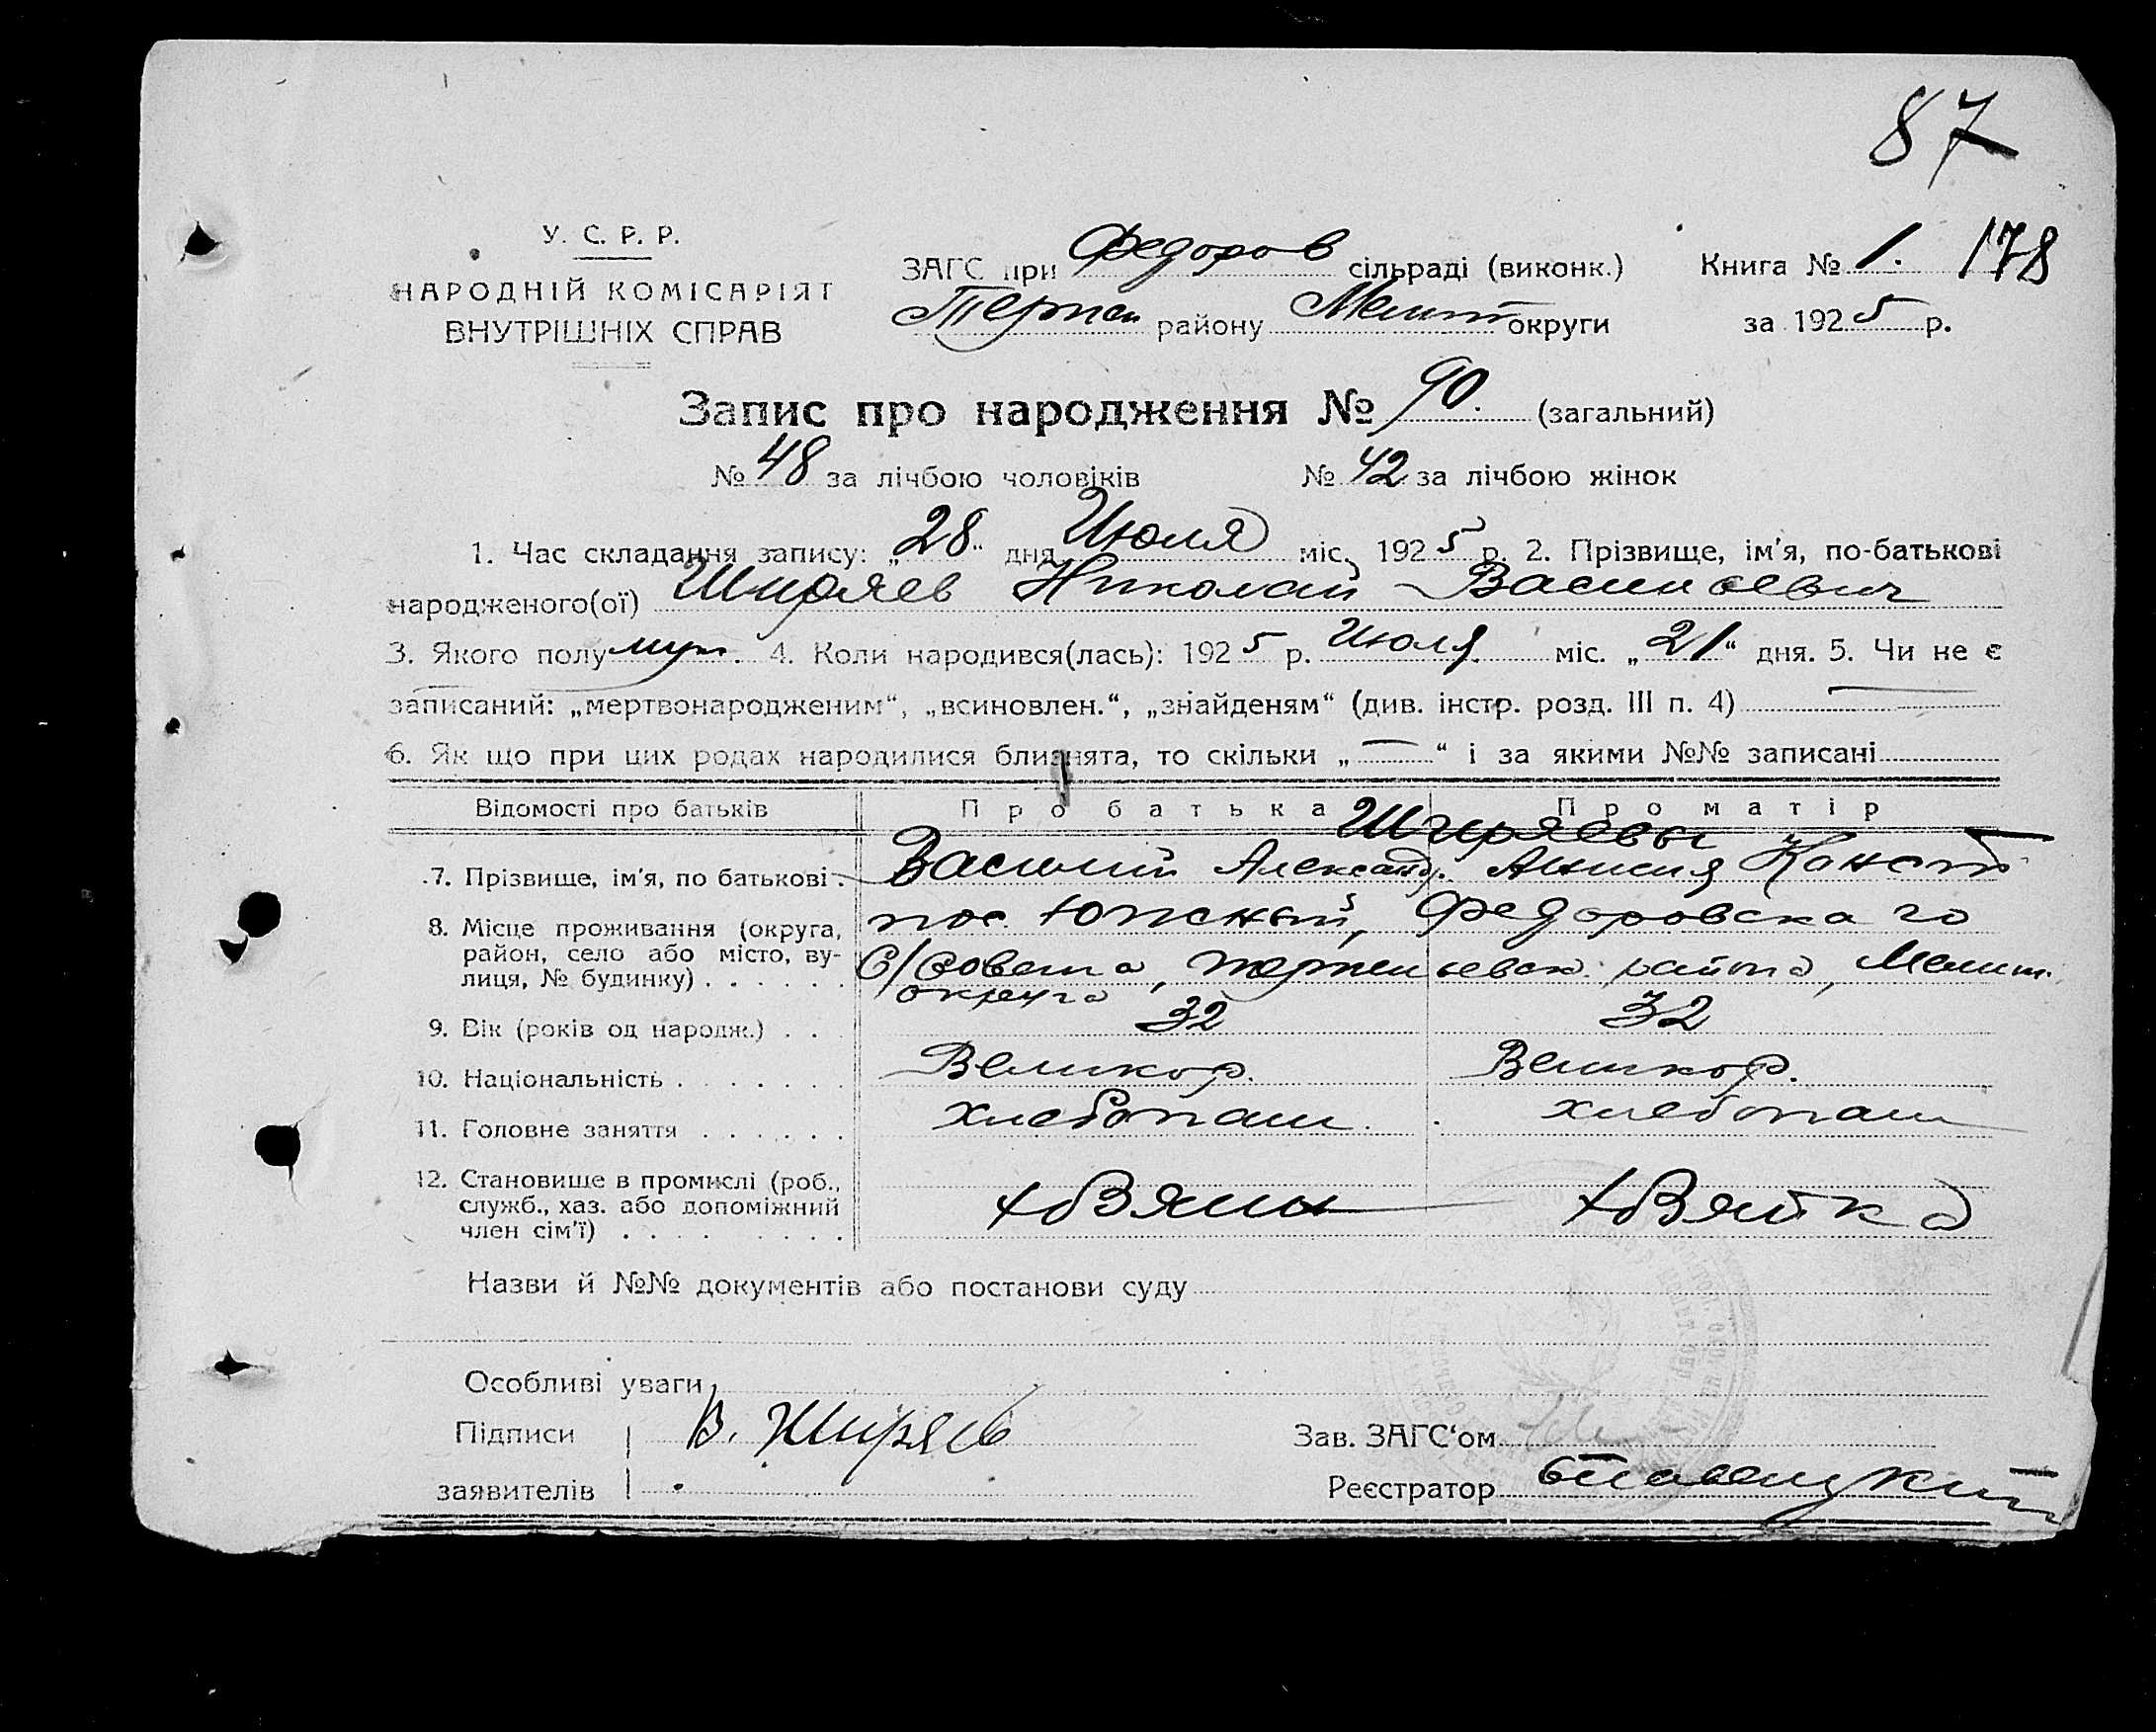 87
У. С. Р. Р.
НАРОДНІЙ КОМІСАРІЯТ
ВНУТРІШНІХ СПРАВ
ЗАГС при Федоров сільраді (виконк.)
Терпен району Мелит округи
Книга № 1. 178
за 1925 р.
Запис про народження № 90. (загальний)
№ 48 за лічбою чоловіків № 42 за лічбою жінок
1. Час складання запису: „28“ дня Июля міс. 1925 р. 2. Прізвище, ім'я, по-батькові
народженого(ої) Ширяев Николай Васильевич
3. Якого полу муж. 4. Коли народився(лась): 1925 р. Июля міс. „21“ дня. 5. Чи не є
записаний: „мертвонародженим“, „всиновлен.“, „знайденям“ (див. інстр. розд. III п. 4)
6. Як що при цих родах народилися близнята, то скільки „—“ і за якими №№ записані
Відомості про батьків Про батька Про матір
Ширяевы
7. Прізвище, ім'я, по батькові. Василий Александр. Анисия Конст
8. Місце проживання (округа, район, село або місто, вулиця, № будинку) пос. Южный, Федоровскаго
С/Совета, Терпеньевск. района, Мелит.
округа
9. Вік (років од народж.) . . 32 32
10. Національність . . . . . . . Великор. Великор.
11. Головне заняття . . . . . . хлебопаш. хлебопаш
12. Становище в промислі (роб.,
служб., хаз. або допоміжний
член сім'ї) . . . . . . . .
Назви й №№ документів або постанови суду
Особливі уваги
Підписи В. Ширяев Зав. ЗАГС'ом
заявителів Реєстратор